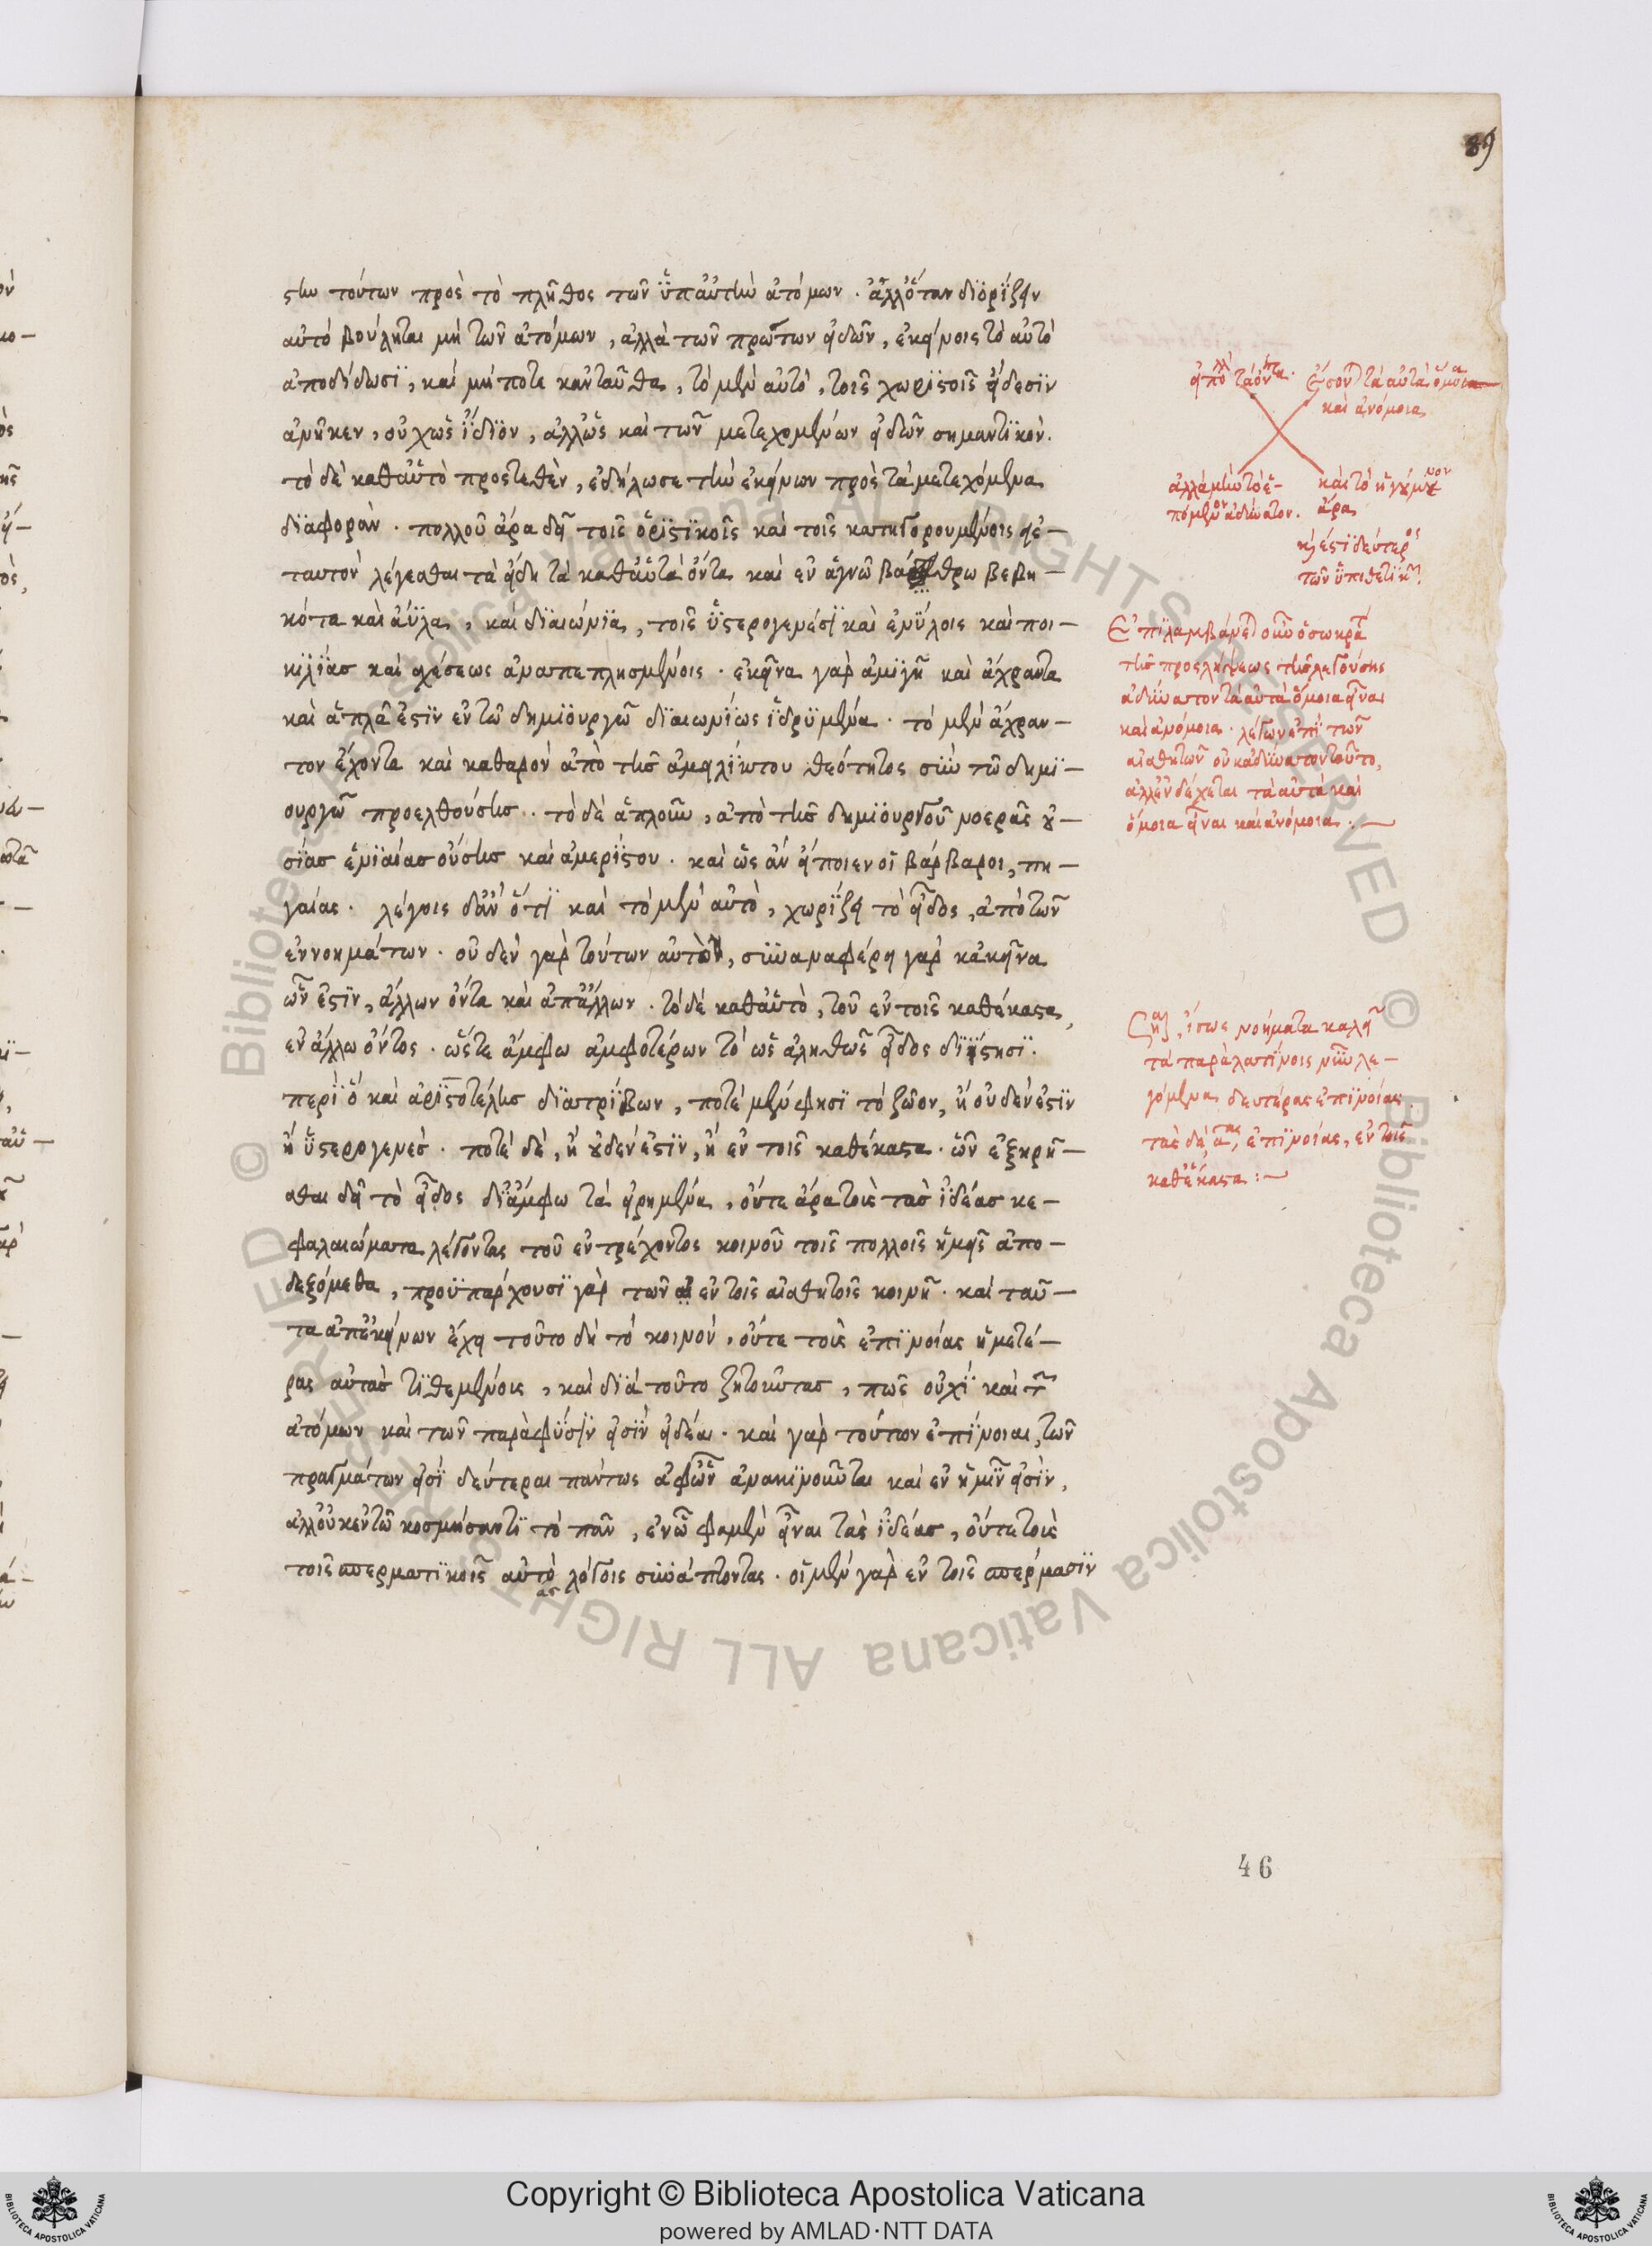 89
στιν τούτων πρὸς τὸ πλῆθος τῶν ὑπ' αὐτὴν ἀτόμων. ἀλλ' ὅταν διορίζειν
αὐτὸ βούληται μὴ τῶν ἀτόμων, ἀλλὰ τῶν πρώτων εἰδῶν, ἐκείνοις τὸ αὐτὸ
ἀποδίδωσι, καὶ μήποτε κἀνταῦθα, τὸ μὲν αὐτὸ, τοῖς χωριστοῖς εἴδεσιν
ἀνῆκεν, οὐχ ὡς ἴδιον, ἀλλ' ὡς καὶ τῶν μετεχομένων εἰδῶν σημαντικὸν.
τὸ δὲ καθ' αὑτὸ προστεθὲν, ἐδήλωσε τὴν ἐκείνων πρὸς τὰ μετεχόμενα
διαφορὰν. πολλοῦ ἄρα δεῖ τοῖς ὁριστικοῖς καὶ τοῖς κατηγορουμένοις εἰς
ταυτὸν λέγεσθαι τὰ εἴδη τὰ καθ' αὑτὰ ὄντα καὶ ἐν ἁγνῷ βάθρω βεβη-
κότα καὶ ἄυλα, καὶ διαιώνια, τοῖς ὑστερογενέσι καὶ ἐνύλοις καὶ ποι-
κιλίας καὶ σχέσεως ἀναπεπλησμένοις. ἐκεῖνα γὰρ ἀμιγῆ καὶ ἄχραντα
καὶ ἁπλᾶ ἐστιν ἐν τῶ δημιουργῶ διαιωνίως ἱδρυμένα. τὸ μὲν ἄχραν-
τον ἔχοντα καὶ καθαρὸν ἀπὸ τῆς ἀμειλίκτου θεότητος σὺν τῶ δημι-
ουργῶ προελθούσης. τὸ δὲ ἁπλοῦν, ἀπὸ τῆς δημιουργοῦ νοερᾶς οὐ-
σίας ἑνιαίας οὔσης καὶ ἀμερίστου. καὶ ὡς ἂν εἴποιεν οἱ βάρβαροι, πη-
γαίας. λέγοις δ' ἂν ὅτι καὶ τὸ μὲν αὐτὸ, χωρίζει τὸ εἶδος, ἀπὸ τῶν
ἐννοημάτων. οὐδὲν γὰρ τούτων αὐτὸ, συναναφέρει γὰρ κἀκεῖνα
ὧν ἐστιν, ἄλλων ὄντα καὶ ἀπ' ἄλλων. τὸ δὲ καθ' αὑτὸ, τοῦ ἐν τοῖς καθέκαστα,
ἐν ἄλλω ὄντος. ὥστε ἄμφω ἀμφοτέρων τὸ ὡς ἀληθῶς εἶδος διΐστησι.
περὶ ὃ καὶ ἀριστοτέλης διατρίβων, ποτὲ μὲν φησὶ τὸ ζῶον, ἢ οὐδὲν ἐστιν
ἢ ὑστερογενὲς. ποτὲ δὲ, ἢ οὐδὲν ἐστιν, ἢ ἐν τοῖς καθέκαστα. ὧν ἐξηρῆ-
σθαι δεῖ τὸ εἶδος δι' ἄμφω τὰ εἰρημένα, οὔτε ἄρα τοὺς τὰς ἰδέας κε-
φαλαιώματα λέγοντας τοῦ ἐντρέχοντος κοινοῦ τοῖς πολλοῖς ἡμεῖς ἀπο-
δεξόμεθα, προϋπάρχουσι γὰρ τῶν ἐν τοῖς αἰσθητοῖς κοινῆ. καὶ ταῦ-
τα ἀπ' ἐκείνων ἔχει τοῦτο δὴ τὸ κοινὸν, οὔτε τοὺς ἐπινοίας ἡμετέ-
ρας αὐτὰς τιθεμένους, καὶ διὰ τοῦτο ζητοῦντας, πῶς οὐχὶ καὶ τῶν
ἀτόμων καὶ τῶν παρὰ φύσιν εἰσὶν εἰδέαι. καὶ γὰρ τούτων ἐπίνοιαι, τῶν
πραγμάτων εἰσὶ δεύτεραι πάντως ἀφ' ὧν ἀνακινοῦνται καὶ ἐν ἡμῖν εἰσὶν,
ἀλλ' οὐκ ἐν τῶ κοσμήσαντι τὸ πᾶν, ἐν ὧ φαμὲν εἶναι τὰς ἰδέας, οὔτε τοὺς
τοῖς σπερματικοῖς αὐτὸ λόγοις συνάπτοντας. οἱ μὲν γὰρ ἐν τοῖς σπέρμασιν
ας
εἰ πολλὰ τὰ ὄντα. ἔσονται τὰ αὐτὰ ὅμοια
καὶ ἀνόμοια
ἀλλὰ μὴν τὸ ἑ-
πόμενον ἀδύνατον.
καὶ τὸ ἡγούμενον
ἄρα
καὶ ἔστι δεύτερος
τῶν ὑποθετικῶν
Ἐπιλαμβάνεται οὖν ὁ σωκράτης
τῆς προσλήψεως τῆς λεγούσης
ἀδύνατον τὰ αὐτὰ ὅμοια εἶναι
καὶ ἀνόμοια. λέγων ἐπὶ τῶν
αἰσθητῶν οὐκ ἀδύνατον τοῦτο,
ἀλλ' ἐνδέχεται τὰ αὐτὰ καὶ
ὅμοια εἶναι καὶ ἀνόμοια.
ἴσως νοήματα καλεῖ
τὰ παρὰ λατίνοις νῦν λε-
γόμενα δευτέρας ἐπινοίας
τὰς δὲ ἐπινοίας, ἐν τοῖς
καθ' ἕκαστα:
46
© Biblioteca Apostolica Vaticana ALL RIGHTS RESERVED
Copyright © Biblioteca Apostolica Vaticana
powered by AMLAD·NTT DATA
BIBLIOTECA APOSTOLICA VATICANA
BIBLIOTECA APOSTOLICA VATICANA